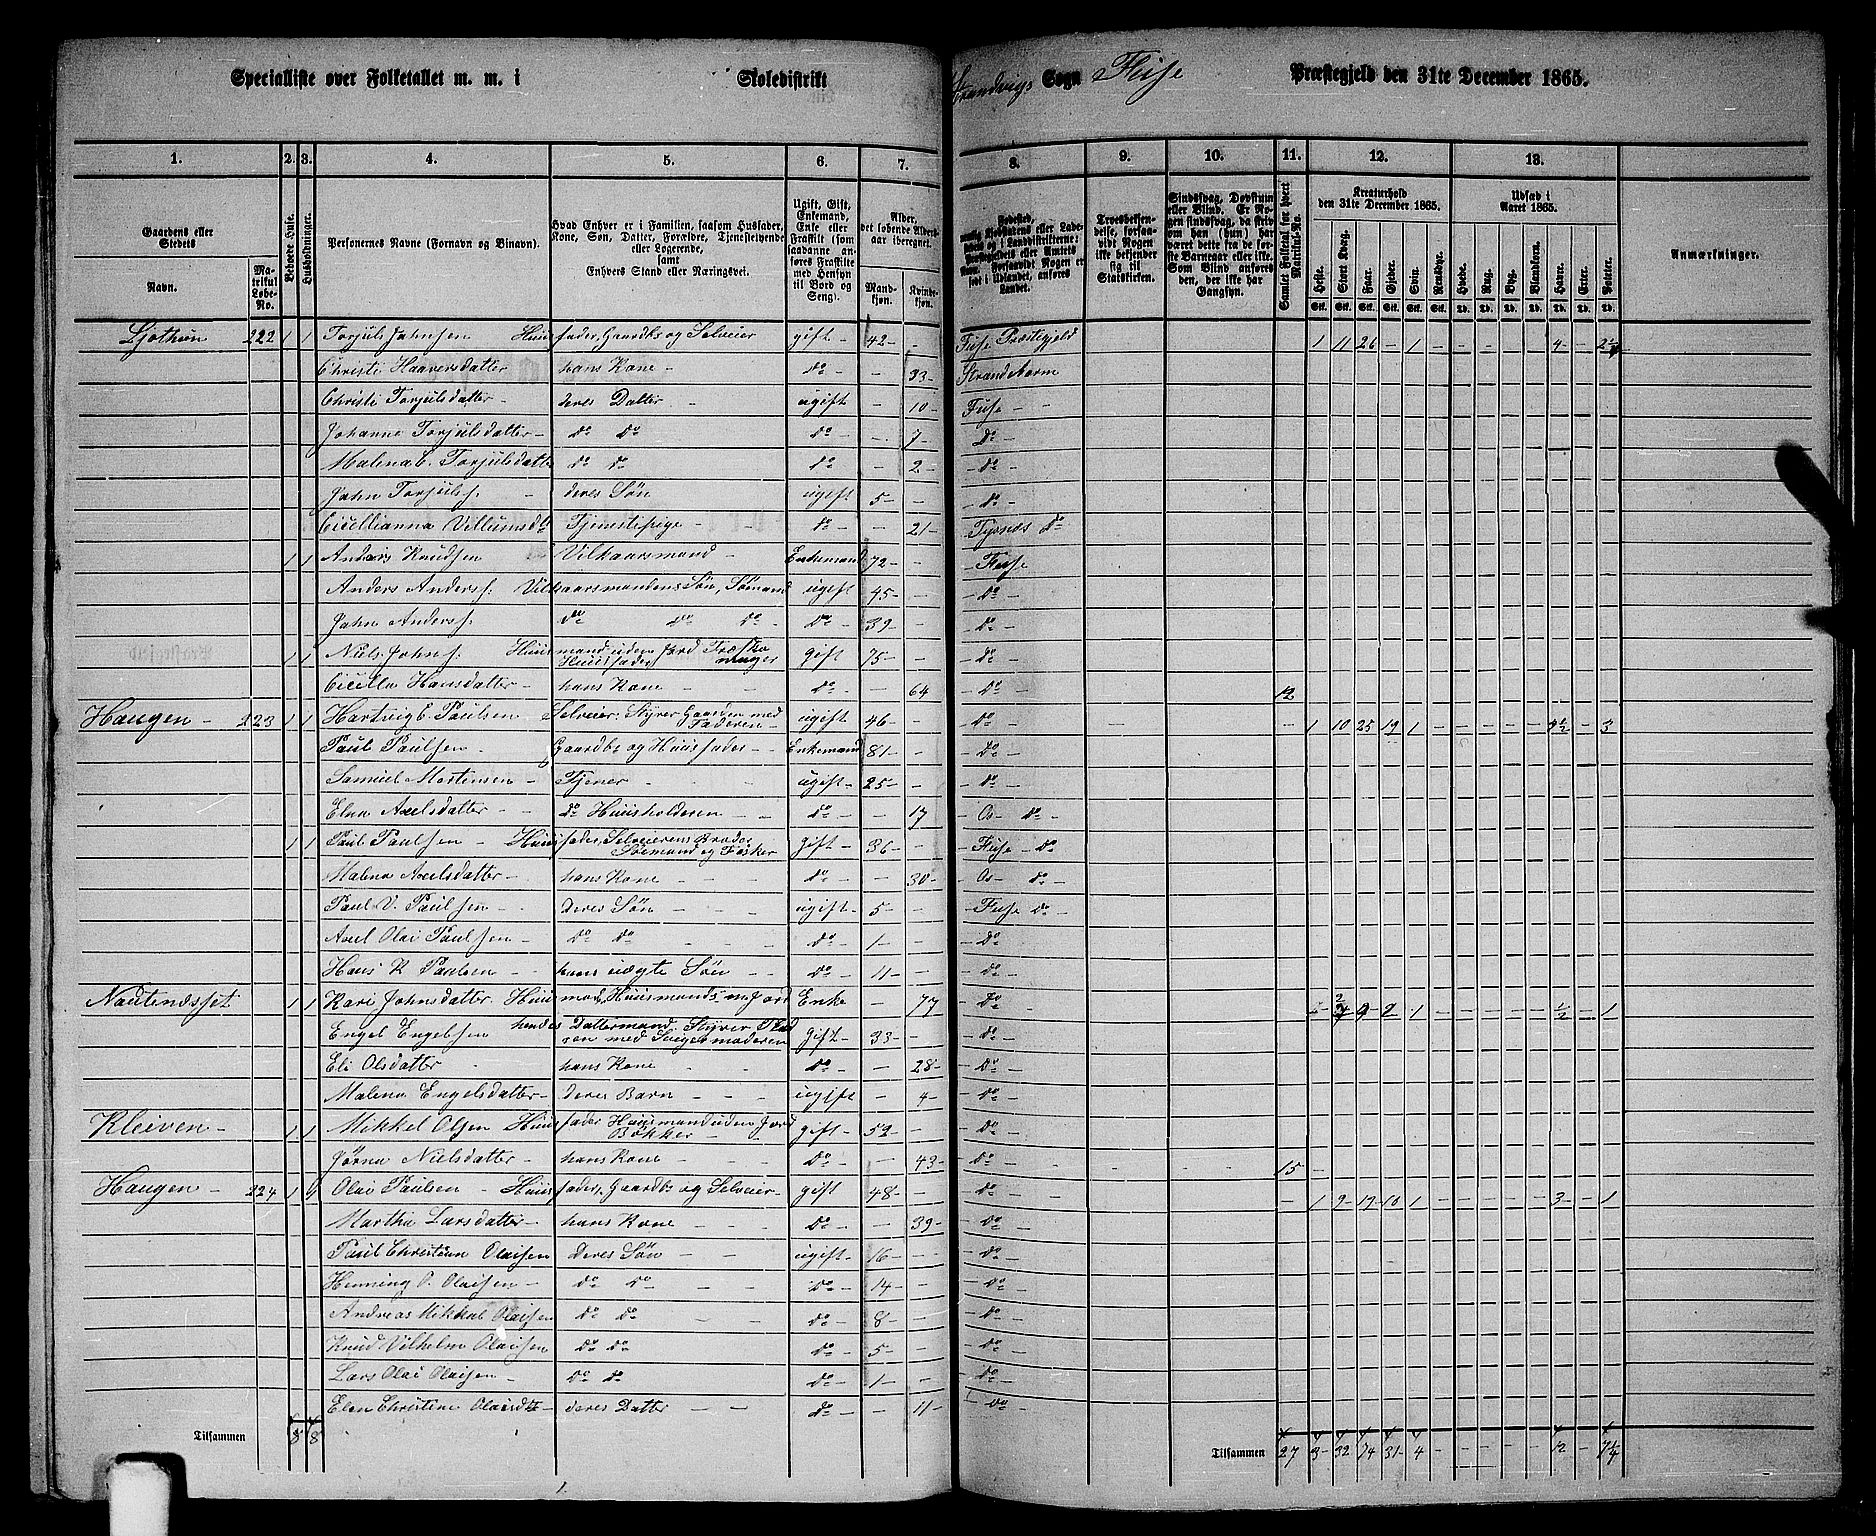 Specialliste over Folketallet m. m. i Skoledistrikt Strandvigs Sogn Fuse Præstegjeld den 31te December 1865.
1. 2. 3. 4. 5. 6. 7. 8. 9. 10. 11. 12. 13.
Gaardens eller Stedets
Navn.
Matrikul Løbe-No.
Beboede Huse.
Husholdninger.
Personernes Navne (Fornavn og Binavn).
Hvad Enhver er i Familien, saasom Husfader, Kone, Søn, Datter, Forældre, Tjenestetyende eller Logerende, samt Enhvers Stand eller Næringsvei.
Ugift, Gift, Enkemand, Enke eller Fraskilt (som saadanne anføres Fraskilte med Hensyn til Bord og Seng).
Alder, det løbende Aldersaar iberegnet.
Mandkjøn.
Kvindekjøn.
Troesbekjendelse, forsaavidt Nogen ikke bekjender sig til Statskirken.
Sindssvag, Døvstum eller Blind. Er Nogen sindssvag, da skrives om han (hun) har været dette fra de første Barneaar eller ikke. Som Blind anføres den, der ikke har Gangsyn.
Samlet Folketal for hvert Matrikul-No.
Kreaturhold den 31te December 1865.
Heste. Stort Kvæg. Faar. Gjeder. Svin. Rensdyr.
Udsæd i Aaret 1865.
Hvede. Rug. Byg. Blandkorn. Havre. Erter. Poteter.
Anmærkninger.
Ljothun 222 1 1 Torjuls Jahnsen Huusfader, Gaardbr og Selveier gift 42 Fuse Præstegjeld 1 11 26 - 1 4
Christi Haaversdatter hans Kone do 33 Strandebarm
Christi Torjulsdatter deres Datter ugift 10 Fuse
Johanne Torjulsdatter do do do 7 Do
Malena C. Torjulsdatter do do do 2 do
Jahn Torjuls. deres Søn ugift 5 do
Cicellianna Villumsdtr Tjenestepige do 21 Tysnæs do
1 1 Anders Knudsen Vilkaarsmand Enkemand 72 Fuse
Anders Anders. Vilkaarsmandens Søn, Sømand ugift 45 do
Jahn Anders. do do do do 39 do
1 1 Niels Johns. Huusmand uden Jord Huusfader gift 75 do
Cicilla Hansdatter hans Kone do 64 do 12
Haugen 223 1 1 Hartvig C. Paulsen Selveier. Styrer Gaarden med Faderen ugift 46 do 1 10 25 19 1 3
Paul Paulsen Gaardbr og Huusfader Enkemand 81 Do
Samuel Mortensen Tjener ugift 25 do
Elna Axelsdatter do Huusholderen do 17 Os do
1 1 Paul Paulsen Huusfader, Selveierens Broder Sømand og Fisker gift 36 Fuse do
Malena Axelsdatter hans Kone do 30 Os do
Paul V. Paulsen deres Søn ugift 5 Fuse do
Axel Olai Paulsen do do do 1 Do
Hans K Paulsen hans uægte Søn do 11 do
Nautenæsset 1 1 Kari Johnsdatter Enke 77 Do 1 1/2 1
Engel Engelsen hendes Dattermand. Styrer med Svigermoderen gift 33 do
Eli Olsdatter hans Kone do 28 do
Malena Engelsdatter deres Barn ugift 4 do
Kleiven 1 1 Mikkel Olsen Huusfader Huusmand uden Jord Bøkker gift 52 do
Jørna Nielsdatter hans Kone do 43 do 15
Haugen 224 1 1 Olai Paulsen Huusfader, Gaardbr og Selveier gift 48 do 1 9 19 10 1 3 1
Martha Larsdatter hans Kone do 39 do
Paul Christian Olaisen deres Søn ugift 16 do
Henning P. Olaisen do do do 14 do
Andreas Mikkal Olaisen do do do 8 do
Knud Vilhelm Olaisen do do do 5 do
Lars Olai Olaisen do do do 1 do
Elen Christine Olaisdtr deres Datter do 11 do
Tilsammen 8 8 Tilsammen 27 3 32 74 31 4 12